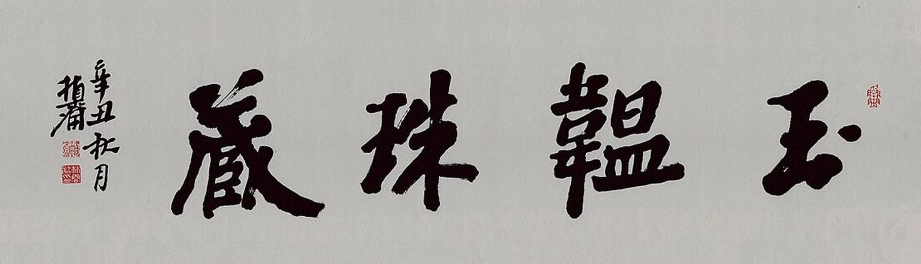 玉韞珠藏
辛丑秋月